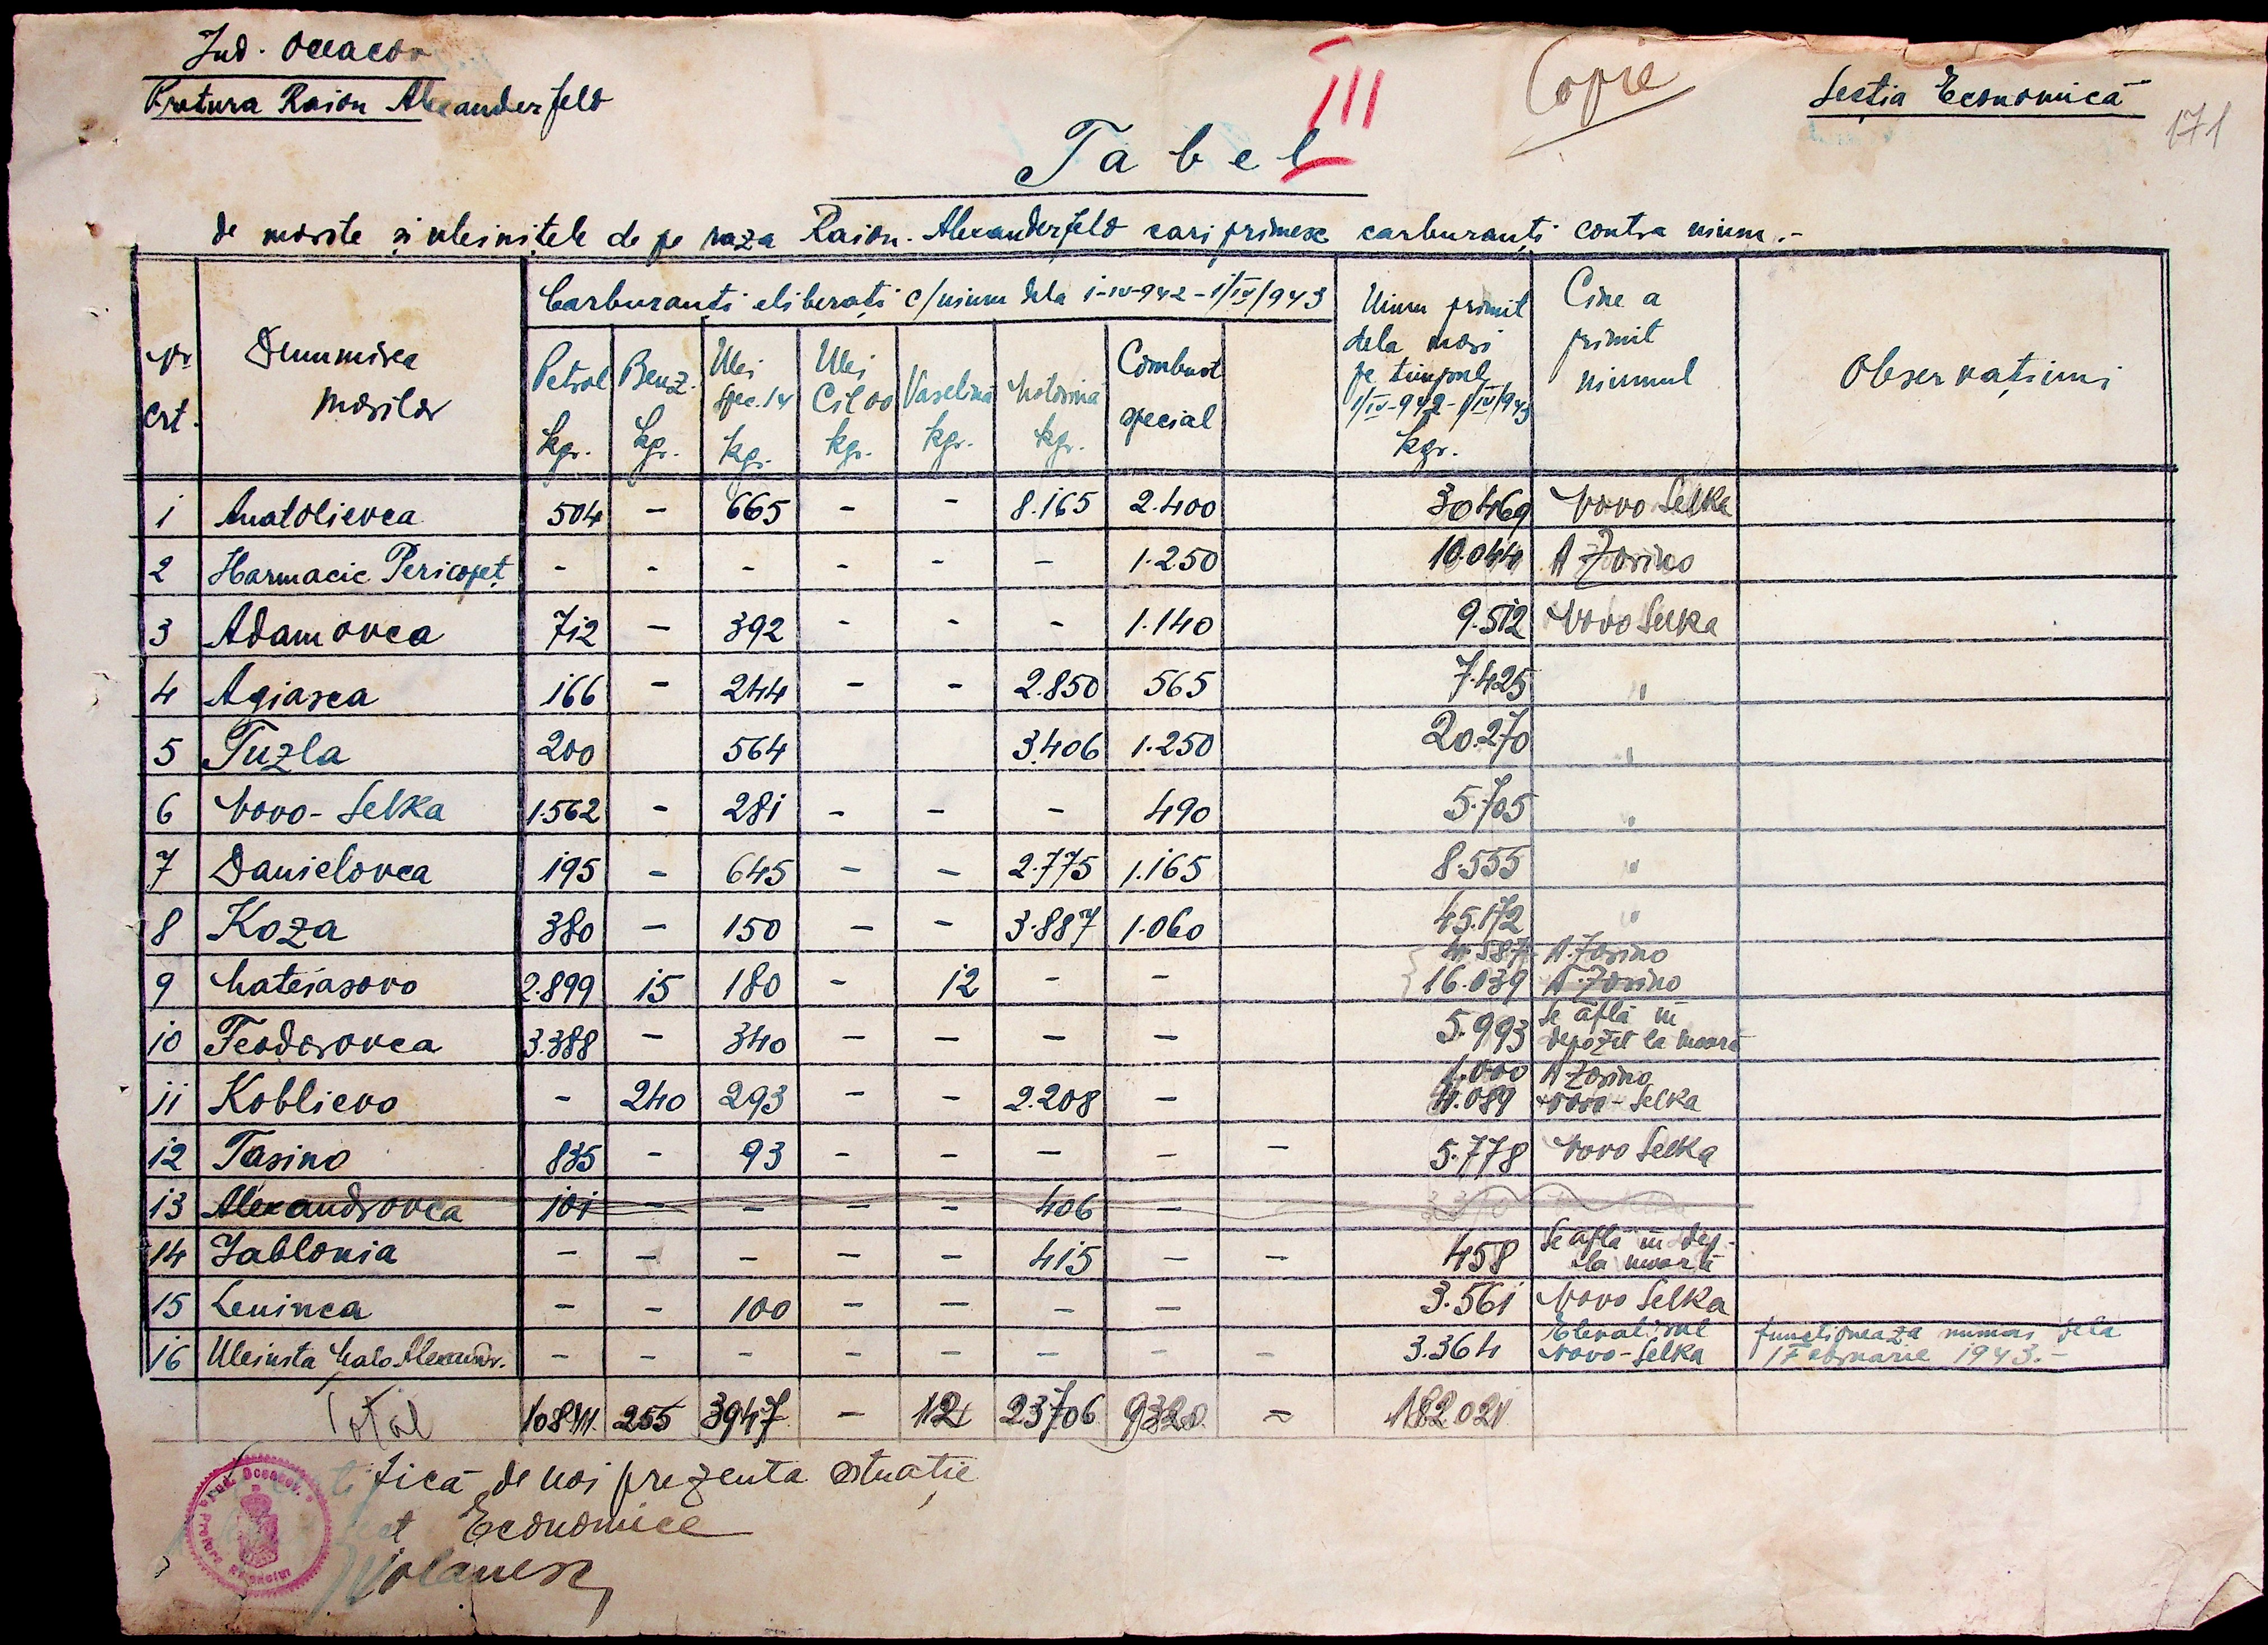 Jud. Oceacov
Pretura Raion Alexanderfeld
III
Copie
Secția Economică
171
Tabel
de morile și uleinițele de pe raza Raion. Alexanderfeld cari primesc carburanți contra uium.-
Nr. crt.
Denumirea morilor
Carburanți eliberați c/uium dela 1-IV-942 - 1/IV/943
Petrol kgr.
Benz. kgr.
Ulei spec. kgr.
Ulei kgr.
Vaselină kgr.
Motorină kgr.
Combust special
Uium primit dela mori pe timpul 1/IV-942-1/IV/943 kgr.
Cine a primit uiumul
Observațiuni
1 Anatolievca 504 - 665 - - 8.165 2.400 30469 Novo Selka
2 Harmacic Pericopeț - - - - - - 1.250 10.044 A Zorino
3 Adamovca 712 - 392 - - - 1.140 9.512 Novo Selka
4 Agiasca 166 - 244 - - 2.850 565 7.425 "
5 Tuzla 200 564 3.406 1.250 20.270 "
6 Novo-Selka 1.562 - 281 - - - 490 5.705 "
7 Danielovca 195 - 645 - - 2.775 1.165 8.555 "
8 Koza 380 - 150 - - 3.887 1.060 45.172 "
9 Mateiasovo 2.899 15 180 - 12 - - 16.039 A. Zorino
A. Zorino
10 Feodorovca 3.388 - 340 - - - - 5.993 Se află în depozit la moară
11 Koblievo - 240 293 - - 2.208 - 1.000 A Zorino
4.089 Novo-Selka
12 Tasino 835 - 93 - - - - - 5.778 Novo Selka
13 Alexandrovca 101 - - - - 406 -
14 Jablonia - - - - - 415 - - 458 Se află în dep. la moară
15 Leninca - - 100 - - - - 3.561 Novo Selka
16 Uleinița Malo Alexandr. - - - - - - - - 3.364 Elevatorul Novo-Selka funcționeaza numai dela 1 Februarie 1943.-
Total 10841 255 3947 - 12 23706 9320 - 182.021
de noi prezenta situație
Economice
Jud. Oceacov